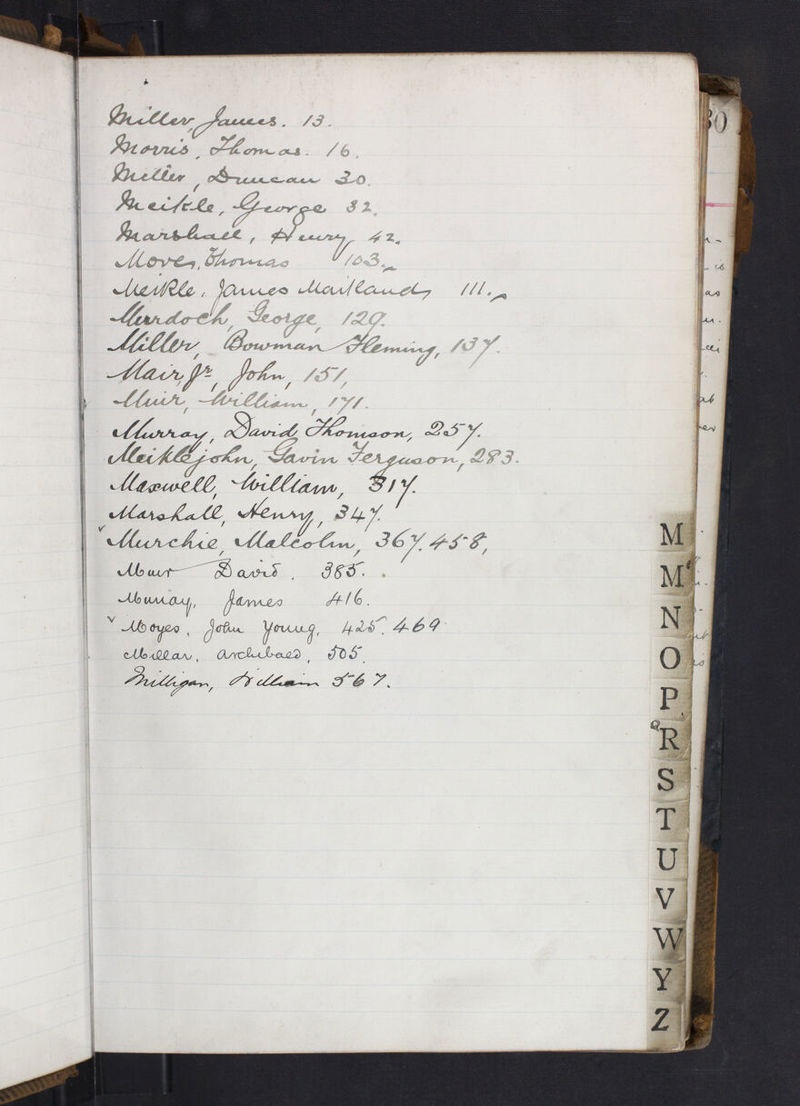 Miller, James. 13.
Morris, Thomas. 16.
Miller, Duncan 30.
Meikle, George 32.
Marshall, Henry 42.
Moves, Thomas 103.
Meikle, James Maitland, 111.
Murdoch, George, 129.
Miller, Bowman Fleming, 137.
Mair, Jr, John, 151,
Muir, William, 171.
Murray, David Thomson, 257.
Meiklejohn, Gavin Ferguson, 283.
Maxwell, William, 317.
Marshall, Henry, 347.
Murchie, Malcolm, 367. 458,
Muir David. 385.
Murray, James 416.
Moyes, John Young, 425. 469
Millar, Archibald, 505.
Milligan, William 567.
30
M
Mc
N
O
P
Q R
S
T
U
V
W
Y
Z